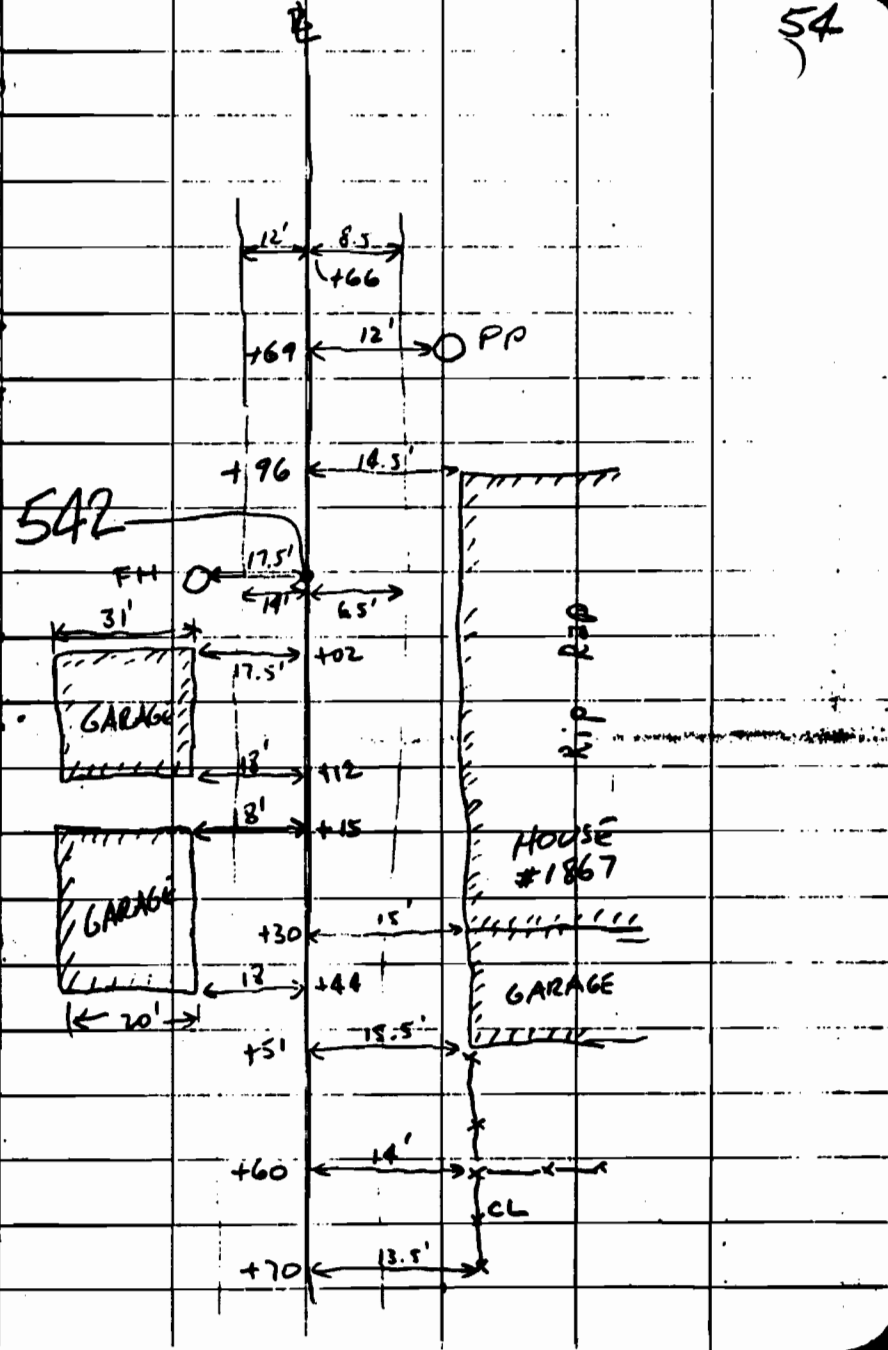 54
12' 8.5
+66
+69 12' PP
+96 14.5'
542
FH 17.5'
14' 6.5'
31'
17.5' +02
GARAGE
Rip Rap
18' +12
18' +15
HOUSE
#1867
GARAGE
+30 15'
18 +44
GARAGE
20'
+51 15.5'
+60 14'
CL
+70 13.5'